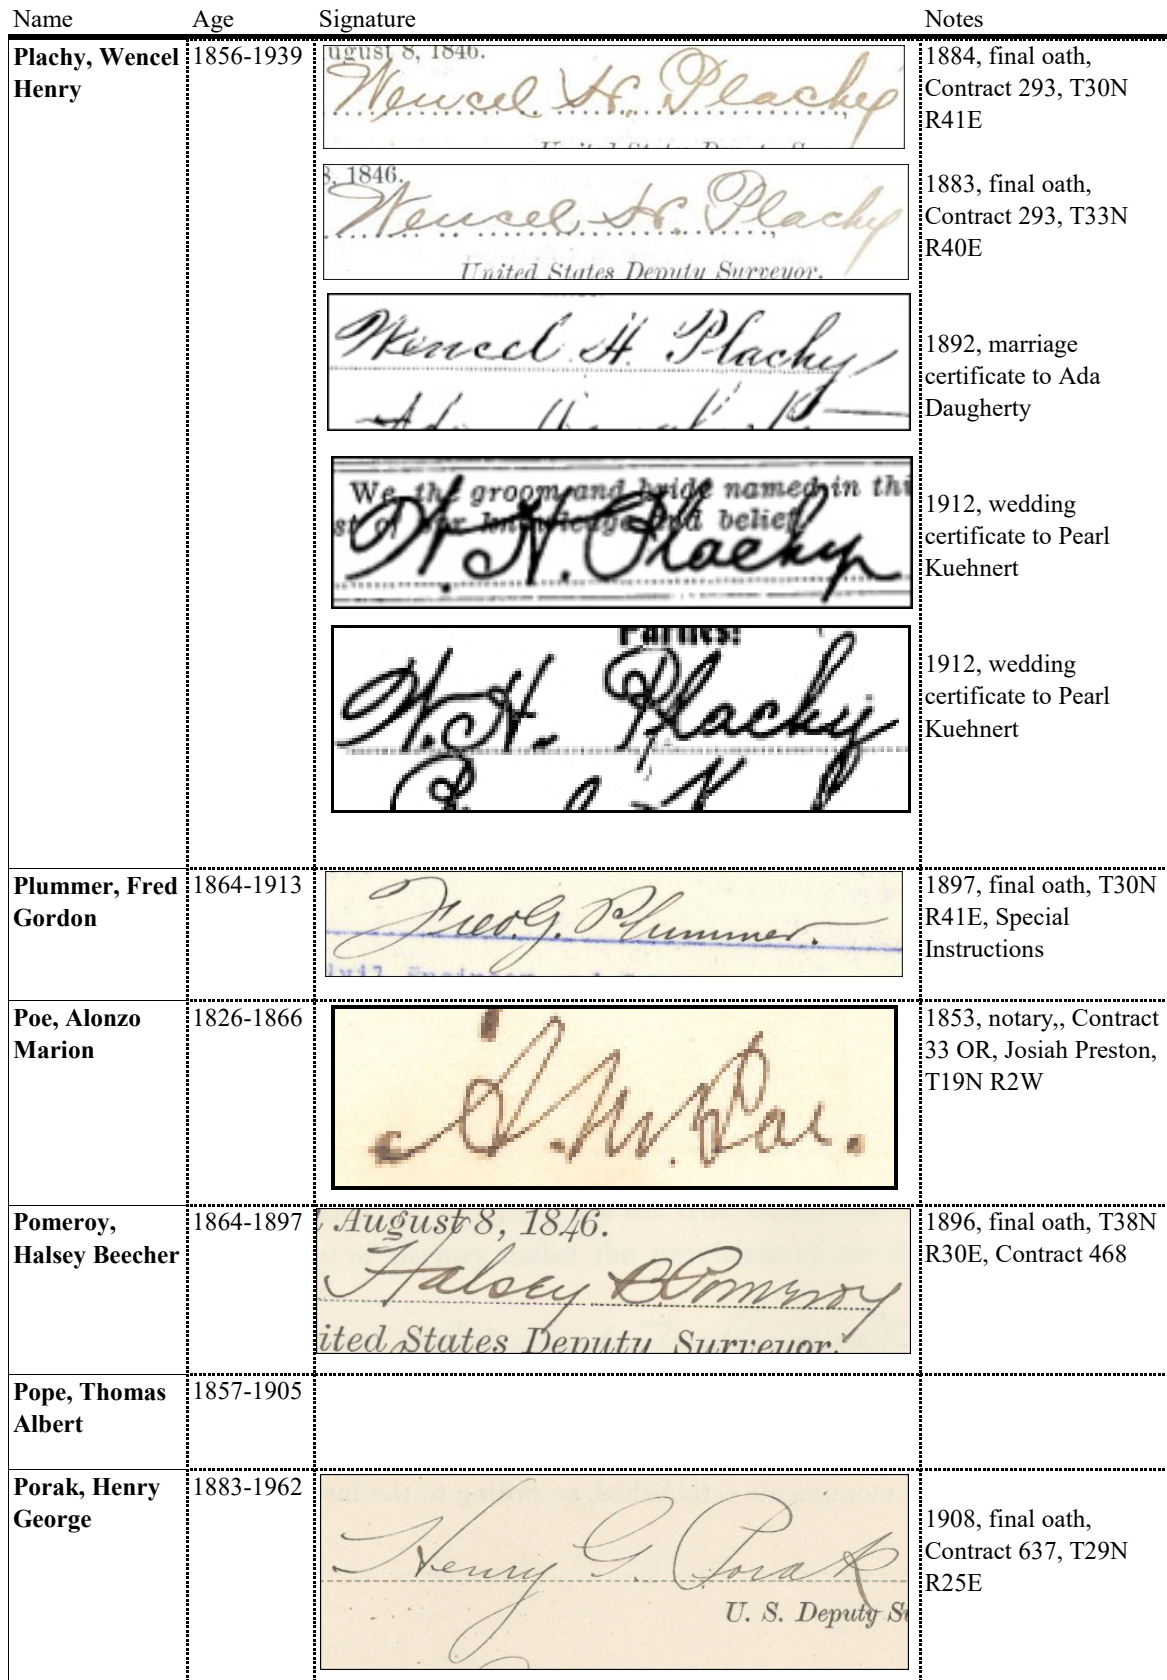 Name Age Signature Notes
Plachy, Wencel Henry 1856-1939
ugust 8, 1846.
Wencel H. Plachy
1884, final oath,
Contract 293, T30N
R41E
8, 1846.
Wencel H. Plachy
United States Deputy Surveyor.
1883, final oath,
Contract 293, T33N
R40E
Wencel H. Plachy
1892, marriage
certificate to Ada
Daugherty
We, the groom and bride named in thi
st of our knowledge and belief
W. H. Plachy
1912, wedding
certificate to Pearl
Kuehnert
Parties:
W. H. Plachy
1912, wedding
certificate to Pearl
Kuehnert
Plummer, Fred Gordon 1864-1913
Fred. G. Plummer.
1897, final oath, T30N
R41E, Special
Instructions
Poe, Alonzo Marion 1826-1866
A. M. Poe.
1853, notary,, Contract
33 OR, Josiah Preston,
T19N R2W
Pomeroy, Halsey Beecher 1864-1897
August 8, 1846.
Halsey B Pomeroy
ited States Deputy Surveyor.
1896, final oath, T38N
R30E, Contract 468
Pope, Thomas Albert 1857-1905
Porak, Henry George 1883-1962
Henry G. Porak
U. S. Deputy Su
1908, final oath,
Contract 637, T29N
R25E